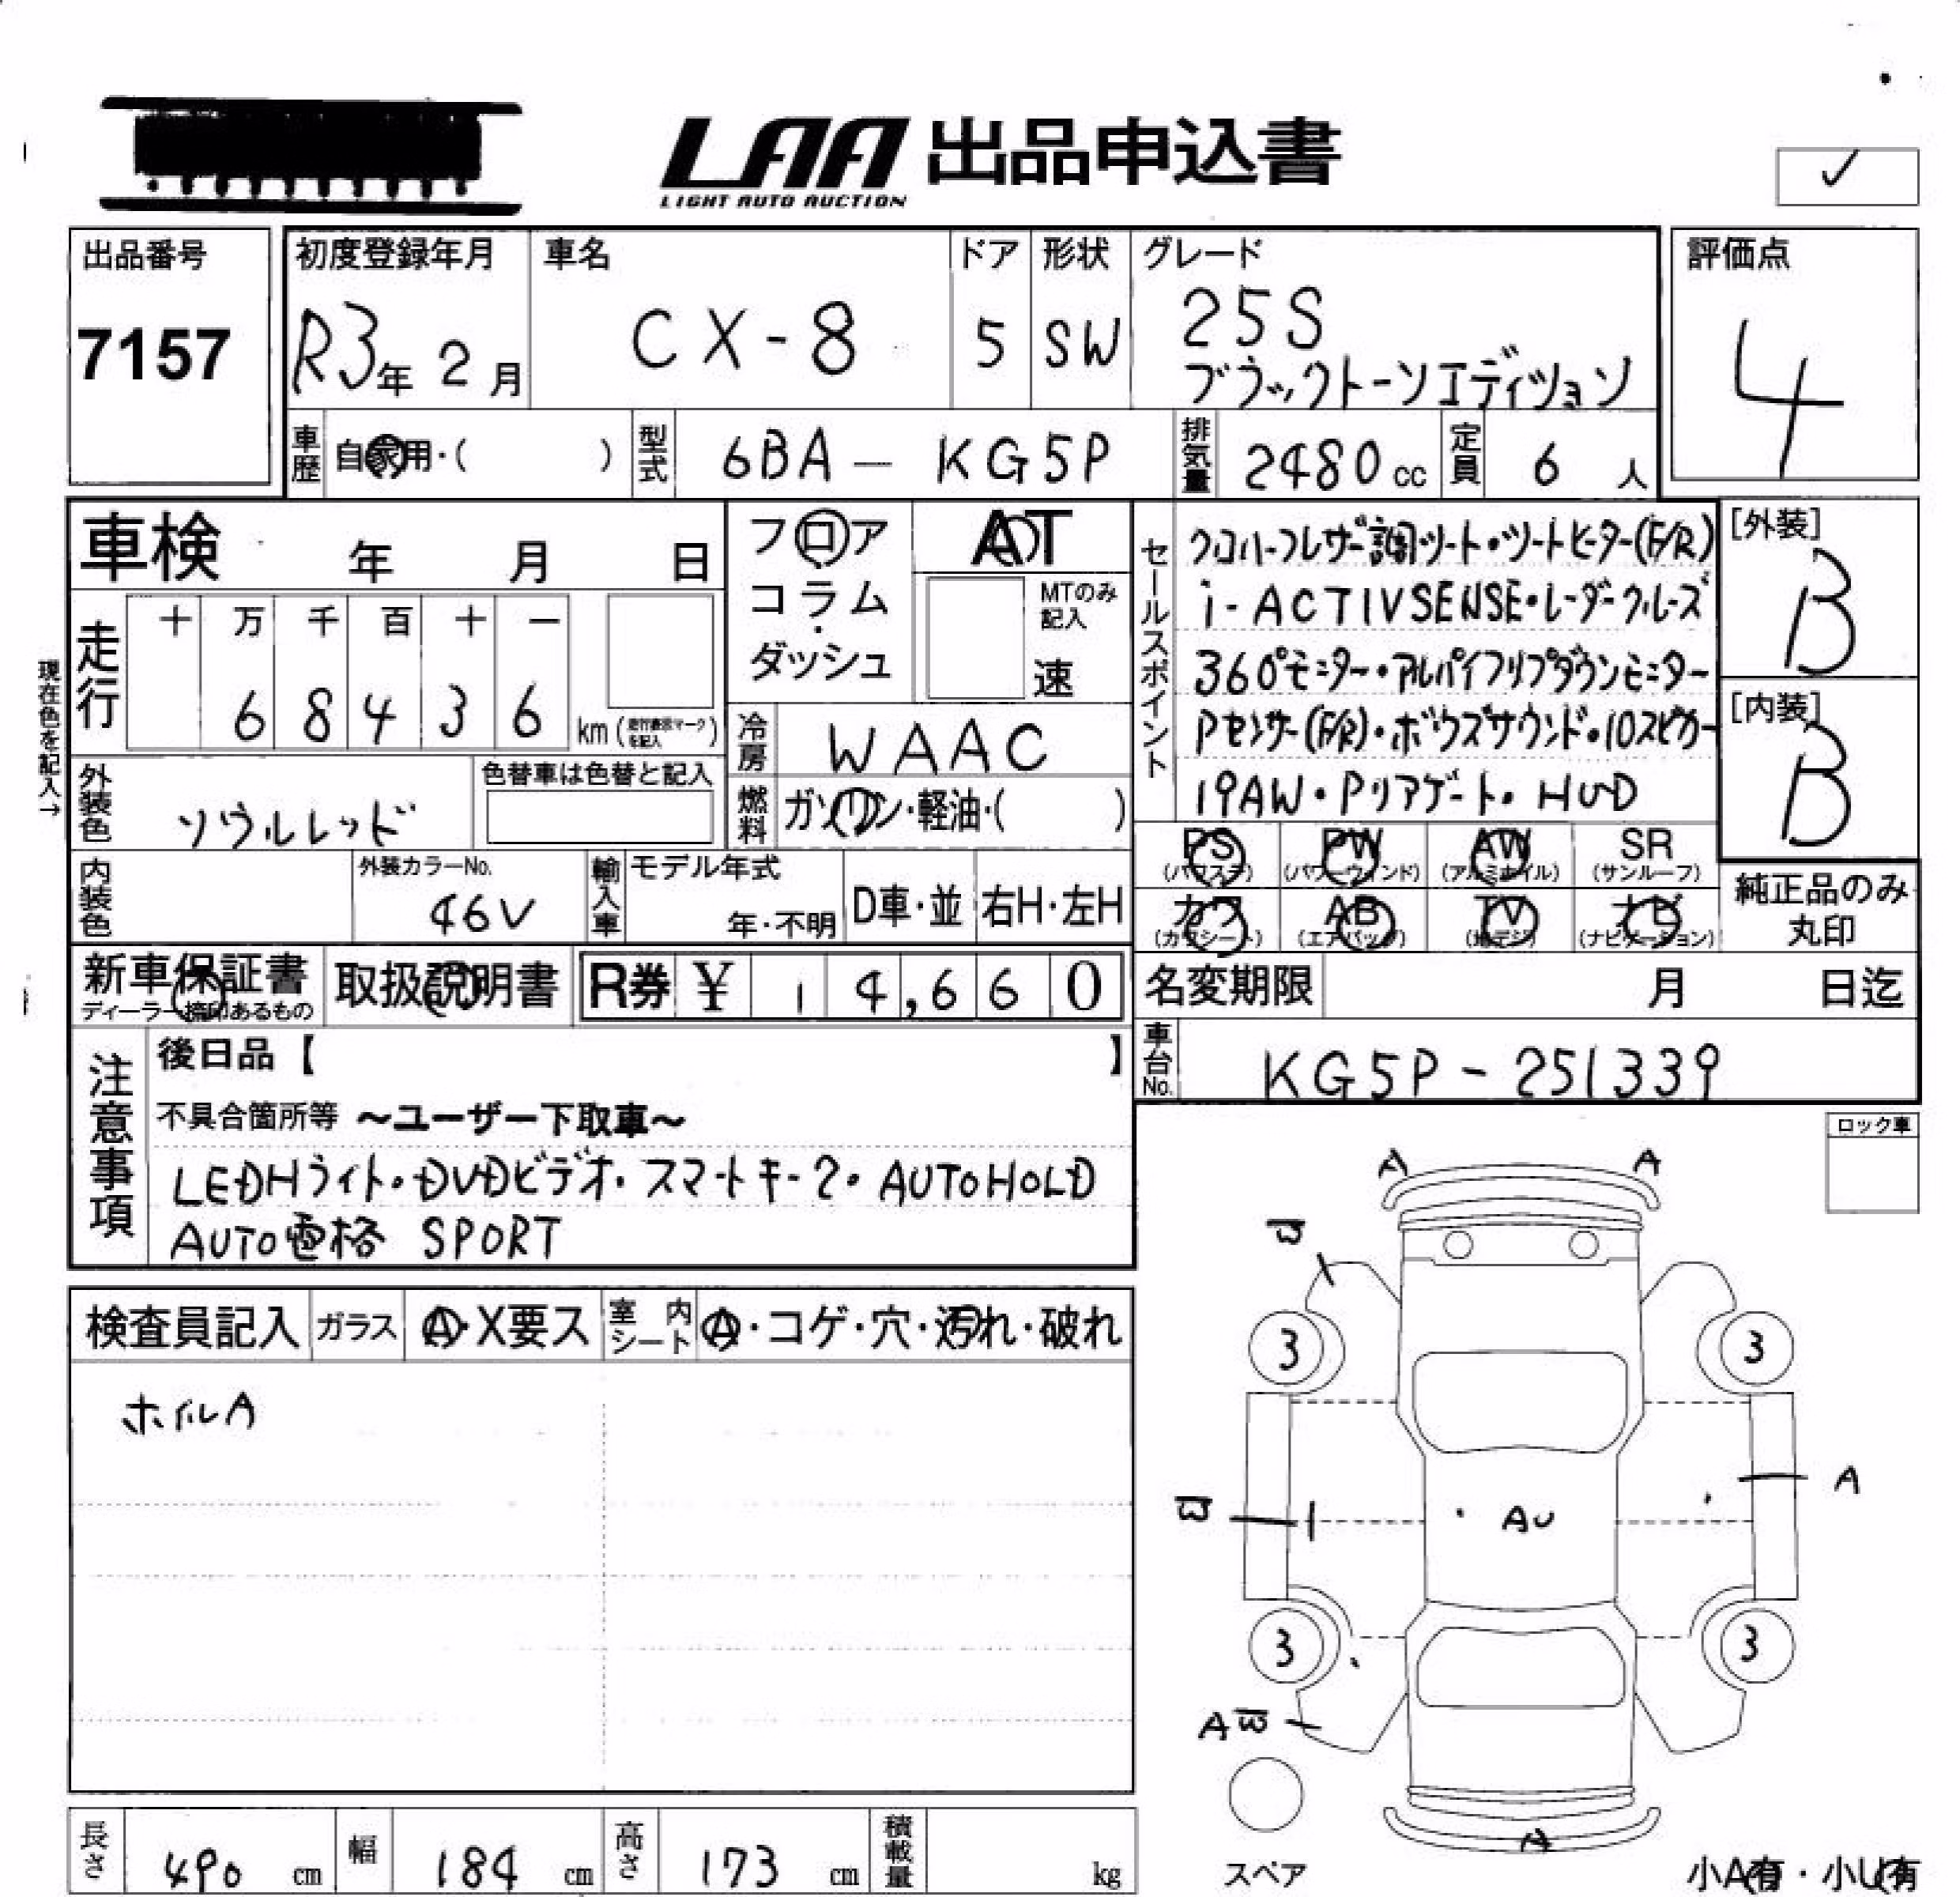 LAA 出品申込書
LIGHT AUTO AUCTION
✓
出品番号
7157
初度登録年月
R3年 2月
車名
CX-8
ドア
5
形状
SW
グレード
25S
ブラックトーンエディション
評価点
4
車歴 自家用・( )
型式 6BA - KG5P
排気量 2480 cc
定員 6 人
車検 年 月 日
現在色を記入→
走行 十 万 千 百 十 一
6 8 4 3 6 km (走行表示マークを記入)
フロア
コラム
・
ダッシュ
AT
MTのみ
記入
速
冷房 WAAC
燃料 ガソリン・軽油・( )
外装色 ソウルレッド
色替車は色替と記入
内装色
外装カラーNo.
46V
輸入車
モデル年式
年・不明
D車・並
右H・左H
セールスポイント
i-ACTIVSENSE・レーダークルーズ
360°モニター・アルパイフリップダウンモニター
Pセンサー(F/R)・ボウズサウンド・10スピカー
19AW・Pリアゲート・HUD
[外装]
B
[内装]
B
PS (パワステ)
PW (パワーウィンド)
AW (アルミホイル)
SR (サンルーフ)
カワ (カワシート)
AB (エアバッグ)
TV (地デジ)
ナビ (ナビゲーション)
純正品のみ
丸印
新車保証書
ディーラー捺印あるもの
取扱説明書
R券 ¥ 14,660
名変期限 月 日迄
車台No. KG5P-251339
注意事項
後日品【 】
不具合箇所等 〜ユーザー下取車〜
LEDHライト・DVDビデオ・スマートキー2・AUTOHOLD
AUTO電格 SPORT
ロック車
検査員記入
ガラス A・X要ス
室内シート A・コゲ・穴・汚れ・破れ
ホイルA
A A
W
3 3
A
W
AU
3 3
AW
A
スペア
小A有・小U有
長さ 490 cm
幅 184 cm
高さ 173 cm
積載量 kg